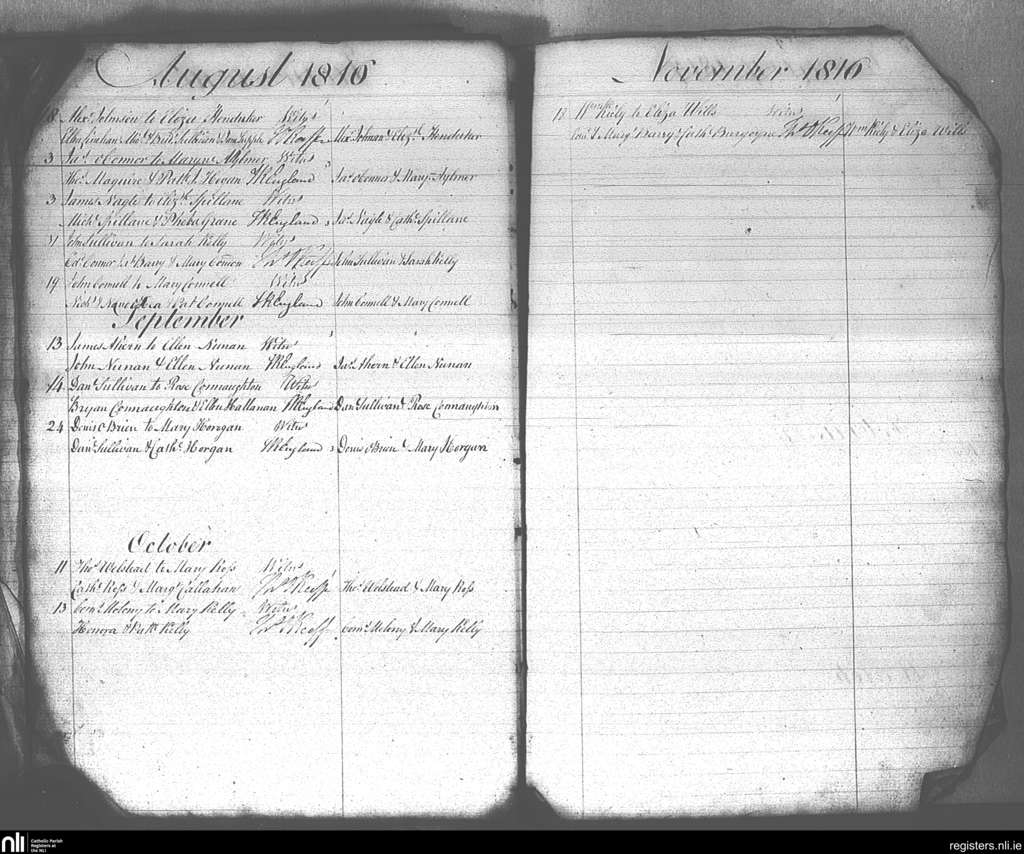 August 1816
18 Alexr Johnson to Eliza Hendaker Witns
Ellen Linehan Sullivan Thos O'Keeffe Alexr Johnson & Elizth Hendaker
3 Jas O'Connor to Maryne Aylmer Witns
Thos Maguire & Patk Ls Hogan TREngland Jas O'Connor & Maryne Aylmer
3 James Nagle to Elizth Spillane Witns
Michl Spillane & Pheba Grane TREngland Jas Nagle & Cathe Spillane
John Sullivan to Sarah Kelly Witns
Ed. Connor Barry & Mary Connor Thos O'Keeffe John Sullivan & Sarah Kelly
19 John Connell to Mary Connell Witns
& Cat Connell TREngland John Connell & Mary Connell
September
13 James Ahern to Ellen Nunan Witns
John Nunan & Ellen Nunan TREngland Jas Ahern & Ellen Nunan
14 Danl Sullivan to Rose Connaughton Witns
Bryan Connaughton & Ellen Hallanan TREngland Danl Sullivan & Rose Connaughton
24 Denis O'Brien to Mary Horgan Witns
Danl Sullivan & Cathe Horgan TREngland Denis O'Brien & Mary Horgan
October
11 Thos Welstead to Mary Ross Witns
Cathe Ross & Margt Callahan Thos O'Keeffe Thos Welstead & Mary Ross
13 Corns Molony to Mary Kelly Witns
Honora & Patk Kelly Thos O'Keeffe Corns Molony & Mary Kelly
November 1816
18 Wm Kiely to Eliza Wills Witns
Corns & Margt Barry Cathe Burgoyne Thos O'Keeffe Wm Kiely & Eliza Wills
nli
Catholic Parish
Registers at
the NLI
registers.nli.ie